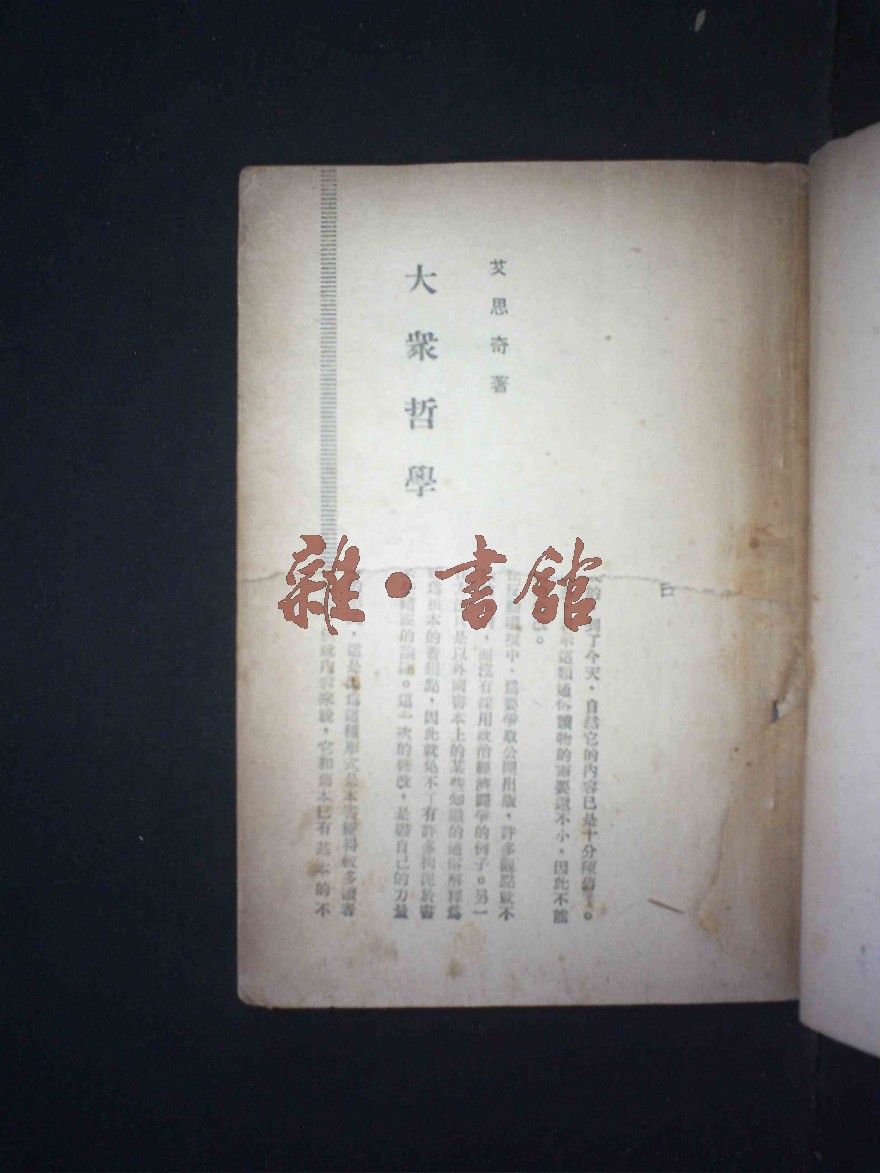 艾思奇著
大衆哲學
到了今天、自然它的內容已是十分陳舊了。
示這類通俗讀物的需要還不小，因此不能
環境中，爲要爭取公開出版，許多觀點就不
，而沒有採用政治經濟鬪爭的例子。另一
是以外國書本上的某些知識的通俗解釋爲
爲根本的着眼點，因此就免不了有許多拘泥於書
的論斷。這一次的修改，是盡自己的力量
，這是因爲這種形式是本書獲得較多讀者
就內容來說，它和舊本已有基本的不
雜·書館